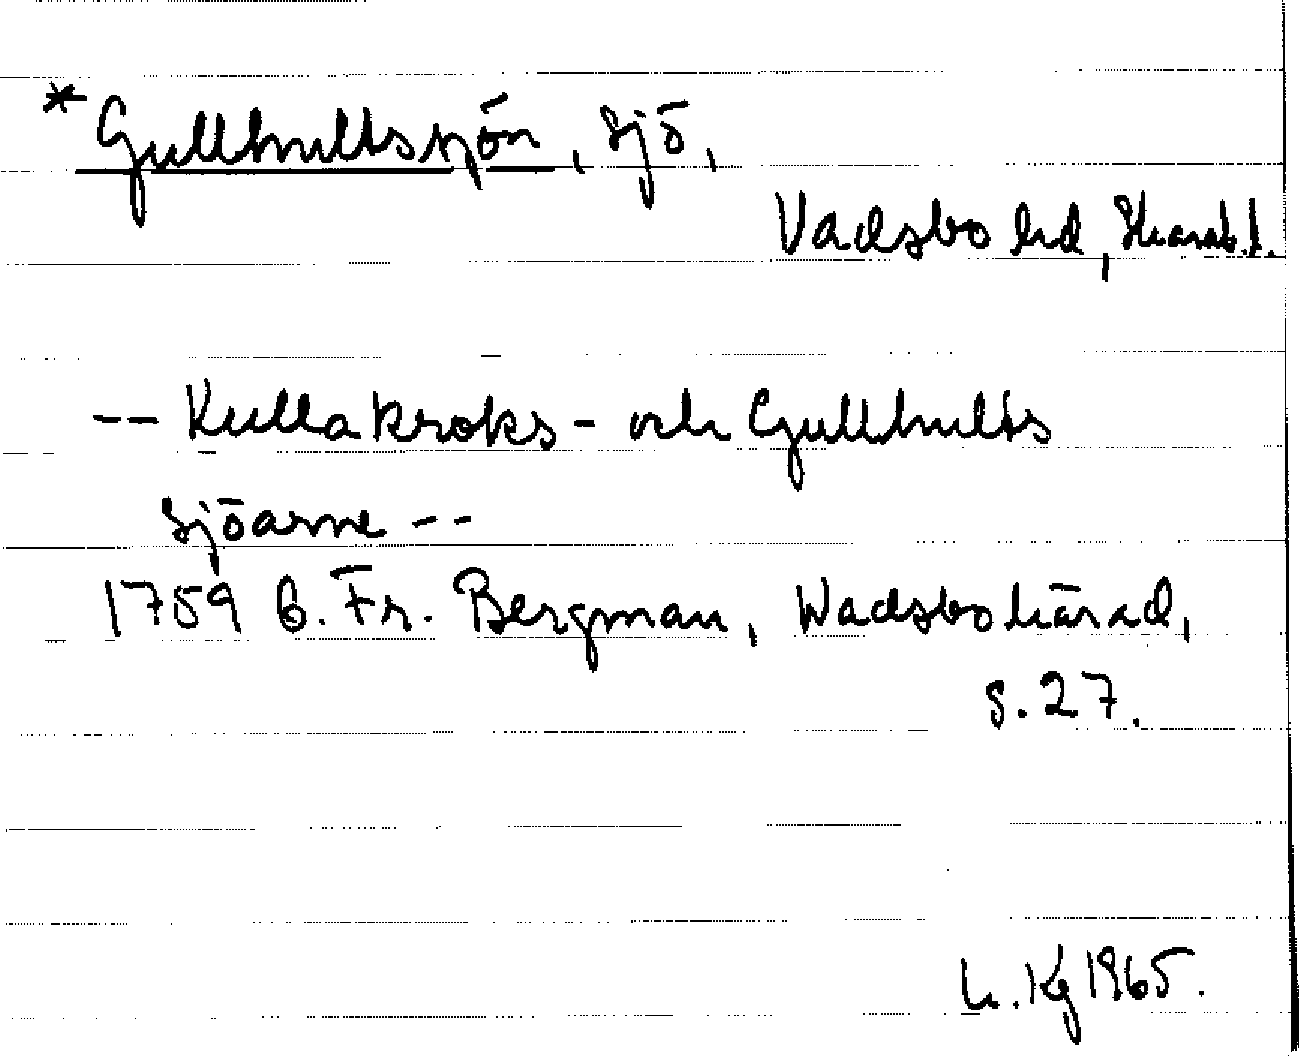 *Gullhultssjön, sjö,
Vadsbo hd, Skarab.l.
-- Kullakroks- och Gullhults
sjöarne --
1759 B. Fr. Bergman, Wadsbo härad,
s. 27.
L. Kg 1965.